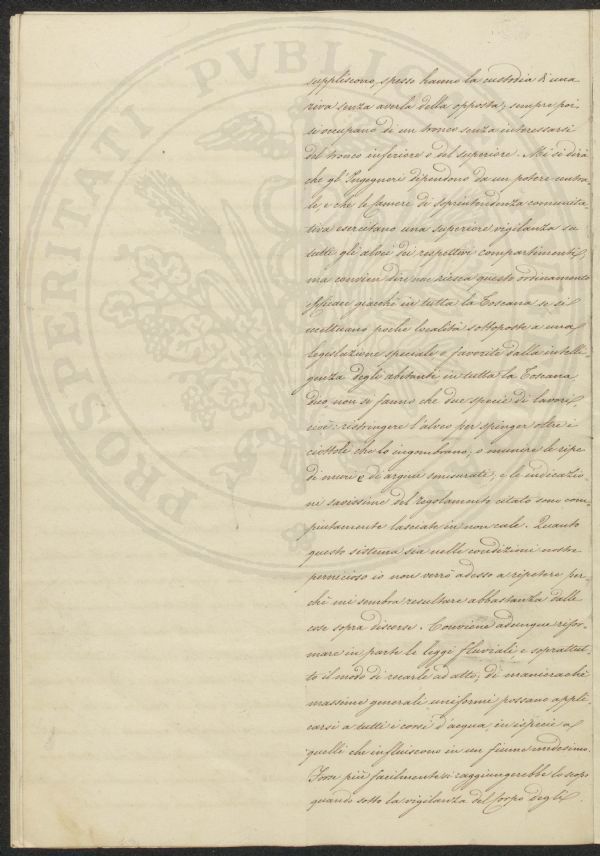 PROSPERITATI PVBLICAE
suppliscono, spesso hanno la custodia di una
riva senza averla della opposta; sempre poi
si occupano di un tronco senza interessarsi
del tronco inferiore o del superiore. Mi si dirà
che gl'Ingegneri dipendono da un potere centra-
le, e che le Camere di Soprintendenza comunita-
tiva esercitano una superiore vigilanza su
tutti gli alvei dei respettivi compartimenti,
ma convien dire non riesca questo ordinamento
efficace giacchè in tutta la Toscana se si
eccettuano poche località sottoposte a una
legislazione speciale o favorite dalla intelli-
genza degli abitanti, in tutta la Toscana,
dico, non si fanno che due specie di lavori
cioè: ristringere l'alveo per spinger oltre i
ciottoli che lo ingombrano; o munire le ripe
di muri e di argini smisurati; e le indicazio-
ni savissime del regolamento citato sono com-
piutamente lasciate in non cale. Quanto
questo sistema sia nelle condizioni nostre
pernicioso io non verrò adesso a ripetere per-
chè mi sembra resultare abbastanza dalle
cose sopra discorse. Conviene adunque rifor-
mare in parte le leggi fluviali, e soprattut-
to il modo di recarle ad atto; di manierachè
massime generali uniformi possano appli-
carsi a tutti i corsi d'acqua, in ispecie a
quelli che influiscono in un fiume medesimo.
Forse più facilmente si raggiungerebbe lo scopo
quando sotto la vigilanza del Corpo degli